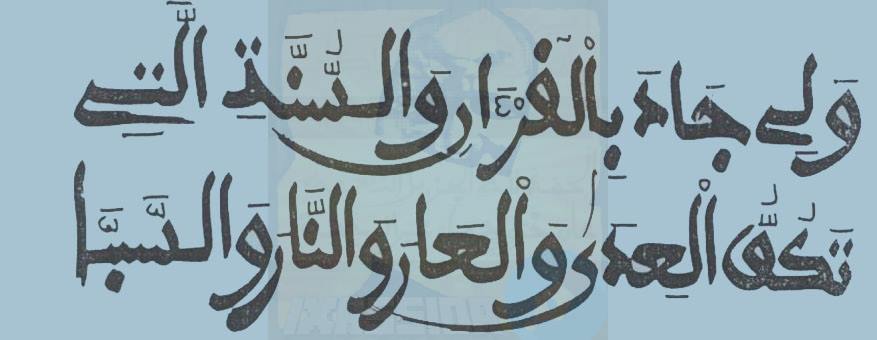 وَلِي جَاءَ بِالْقُرْآنِ وَالسُّنَّةِ الَّتِي
تَكُفُّ الْعِدَى وَالْعَارَ وَالنَّارَ وَالسَّبَّا